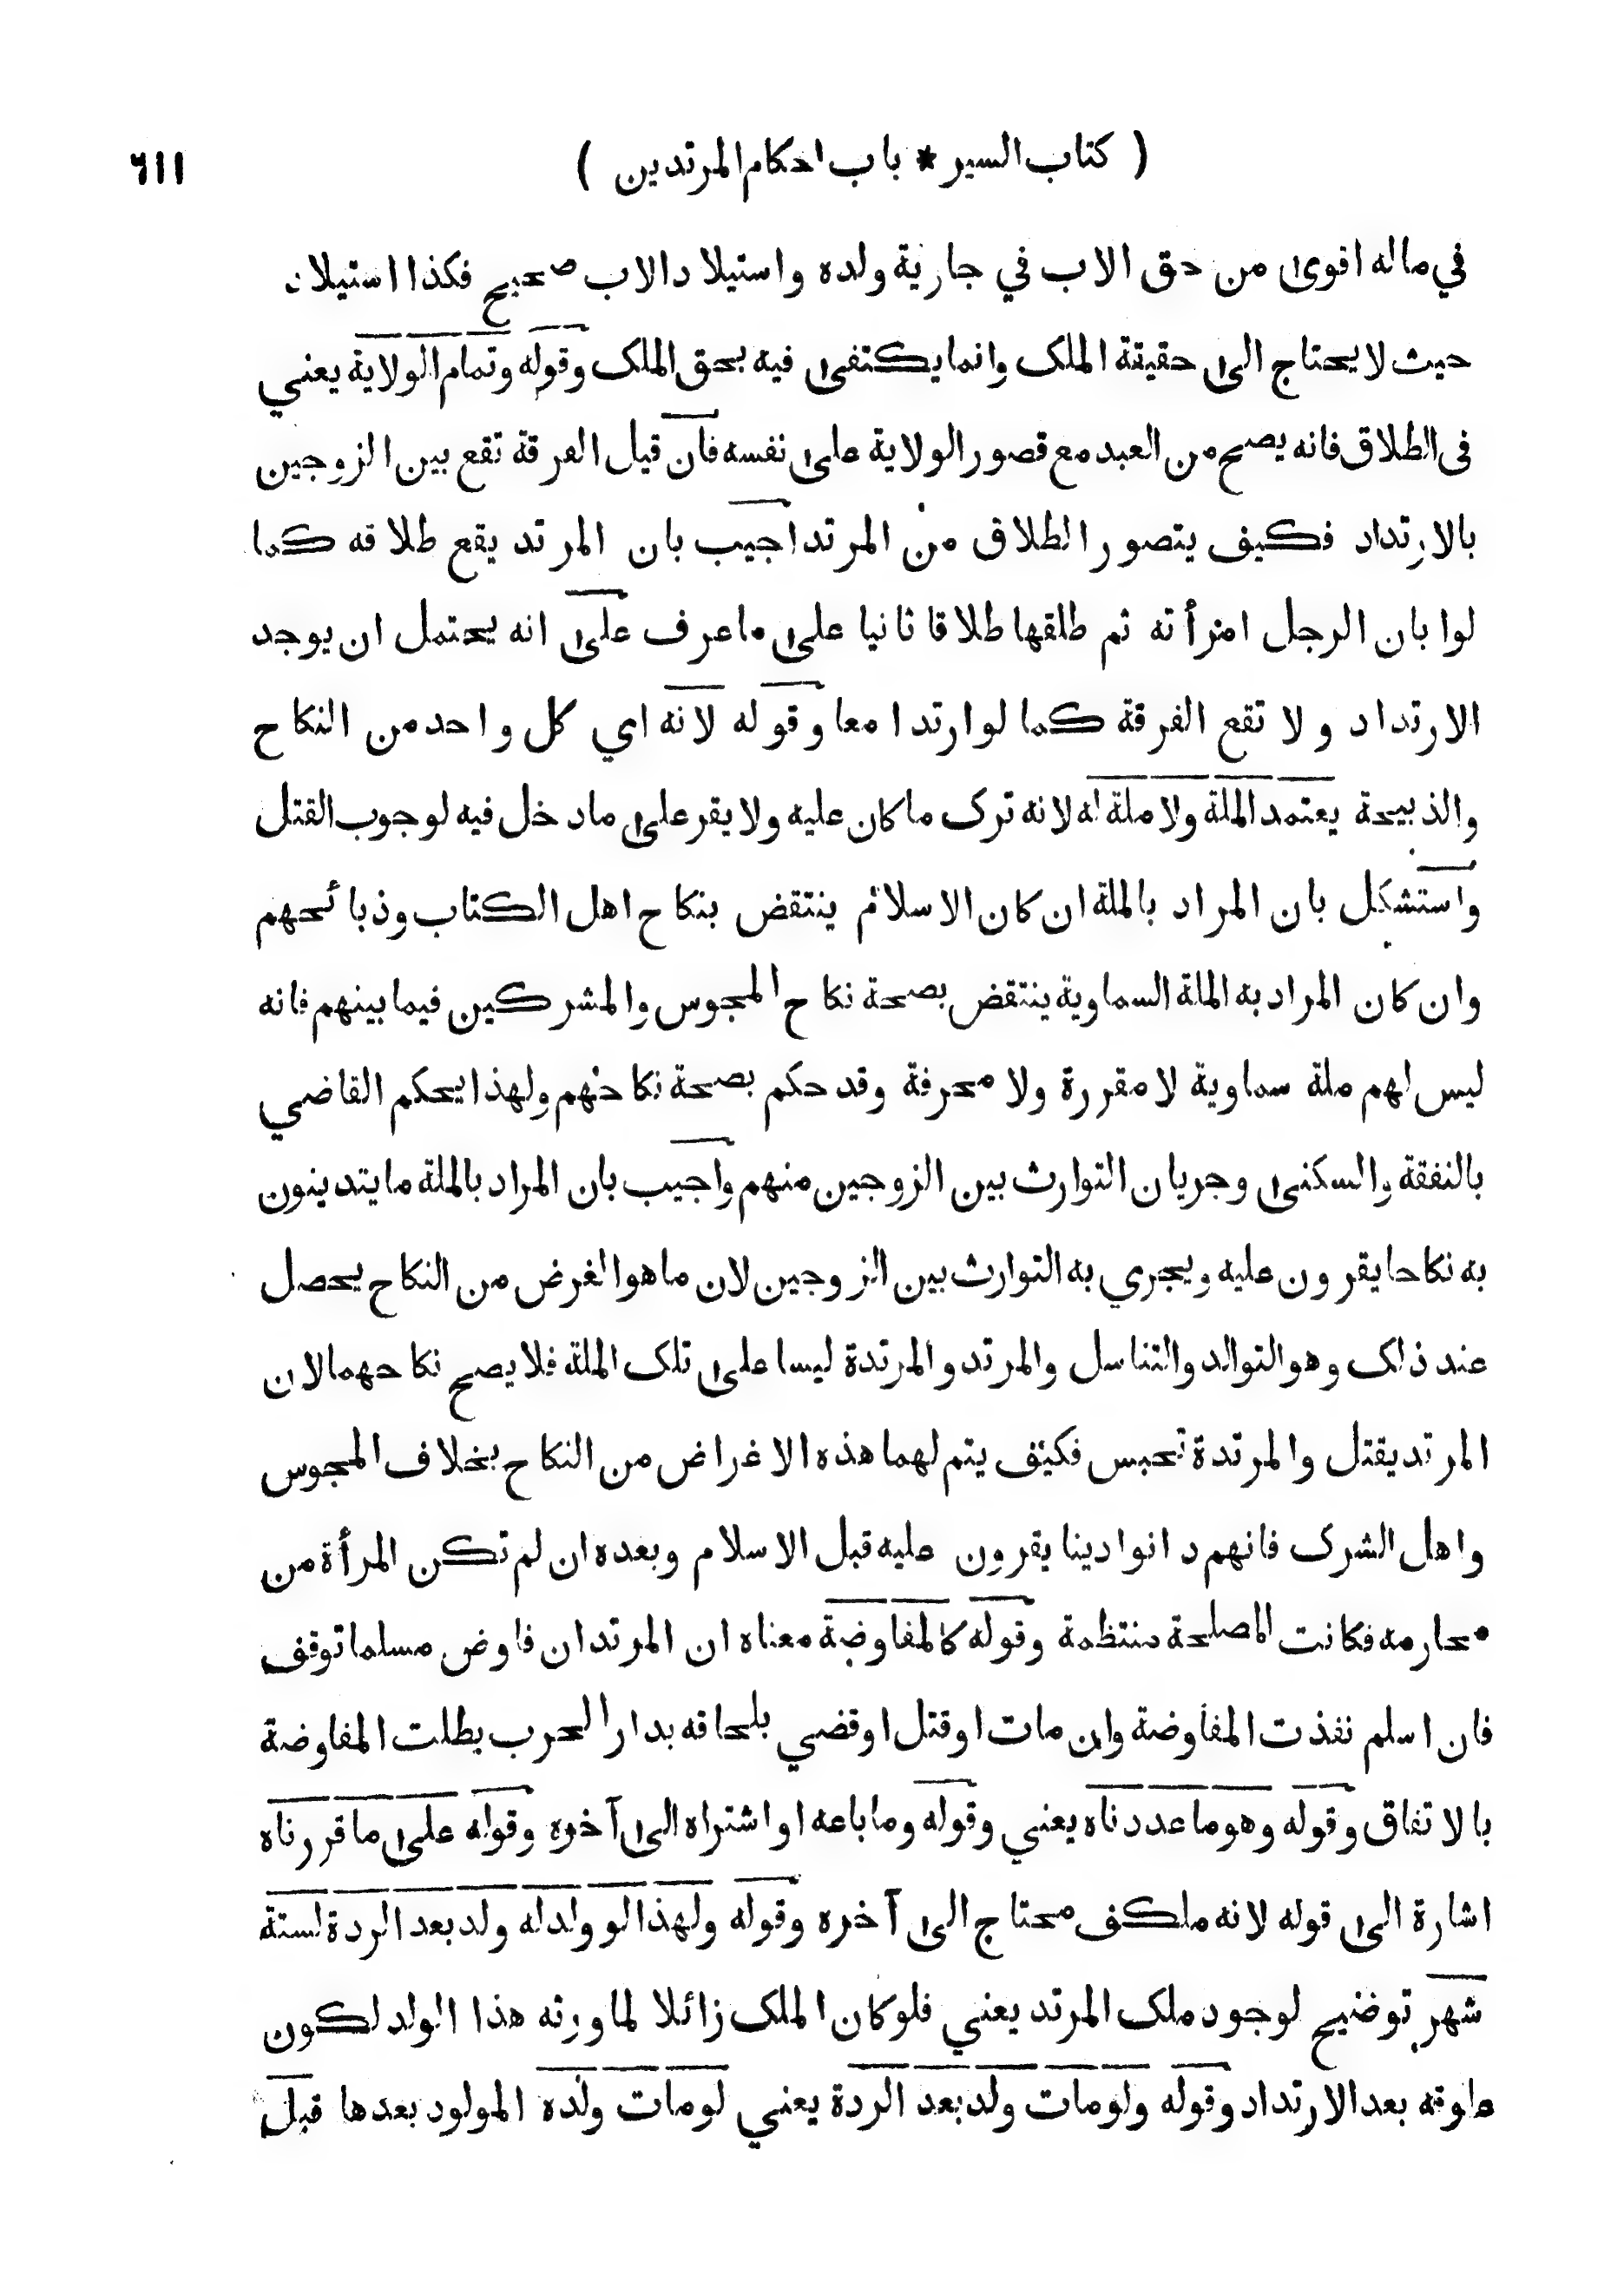 ( كتاب السير * باب احكام المرتدين )
٦١١
في ماله اقوى من حق الاب في جارية ولده واستيلاد الاب صحيح فكذا استيلاد
حيث لا يحتاج الى حقيقة الملك وانما يكتفى فيه بحق الملك وقوله وتمام الولاية يعني
فى الطلاق فانه يصح من العبد مع قصور الولاية على نفسه فان قيل الفرقة تقع بين الزوجين
بالارتداد فكيف يتصور الطلاق من المرتد اجيب بان المرتد يقع طلاقه كما
لوا بان الرجل امرأته ثم طلقها طلاقا ثانيا على ما عرف على انه يحتمل ان يوجد
الارتداد ولا تقع الفرقة كما لوارتدا معا وقوله لانه اي كل واحد من النكاح
والذبيحة يعتمد الملة ولا ملة له لانه ترك ما كان عليه ولا يقر على ما دخل فيه لوجوب القتل
واستشكل بان المراد بالملة ان كان الاسلام ينتقض بنكاح اهل الكتاب وذبائحهم
وان كان المراد به الملة السماوية ينتقض بصحة نكاح المجوس والمشركين فيما بينهم فانه
ليس لهم ملة سماوية لا مقررة ولا محرفة وقد حكم بصحة نكاحهم ولهذا يحكم القاضي
بالنفقة والسكنى وجريان التوارث بين الزوجين منهم واجيب بان المراد بالملة ما يتدينون
به نكاحا يقرون عليه ويجري به التوارث بين الزوجين لان ما هو الغرض من النكاح يحصل
عند ذلك وهو التوالد والتناسل والمرتد والمرتدة ليسا على تلك الملة فلا يصح نكاحهما لان
المرتد يقتل والمرتدة تحبس فكيف يتم لهما هذه الاغراض من النكاح بخلاف المجوس
واهل الشرك فانهم دانوا دينا يقرون عليه قبل الاسلام وبعده ان لم تكن المرأة من
محارمه فكانت المصلحة منتظمة وقوله كالمفاوضة معناه ان المرتد ان فاوض مسلما توقف
فان اسلم نفذت المفاوضة وان مات اوقتل اوقضي بلحاقه بدار الحرب بطلت المفاوضة
بالاتفاق وقوله وهو ما عددناه يعني وقوله وما باعه او اشتراه الى آخره وقوله على ما قررناه
اشارة الى قوله لانه مكلف محتاج الى آخره وقوله ولهذا لو ولد له ولد بعد الردة لستة
شهر توضيح لوجود ملك المرتد يعني فلو كان الملك زائلا لما ورثه هذا الولد لكون
علوقه بعد الارتداد وقوله ولومات ولد بعد الردة يعني لومات ولده المولود بعدها قبل